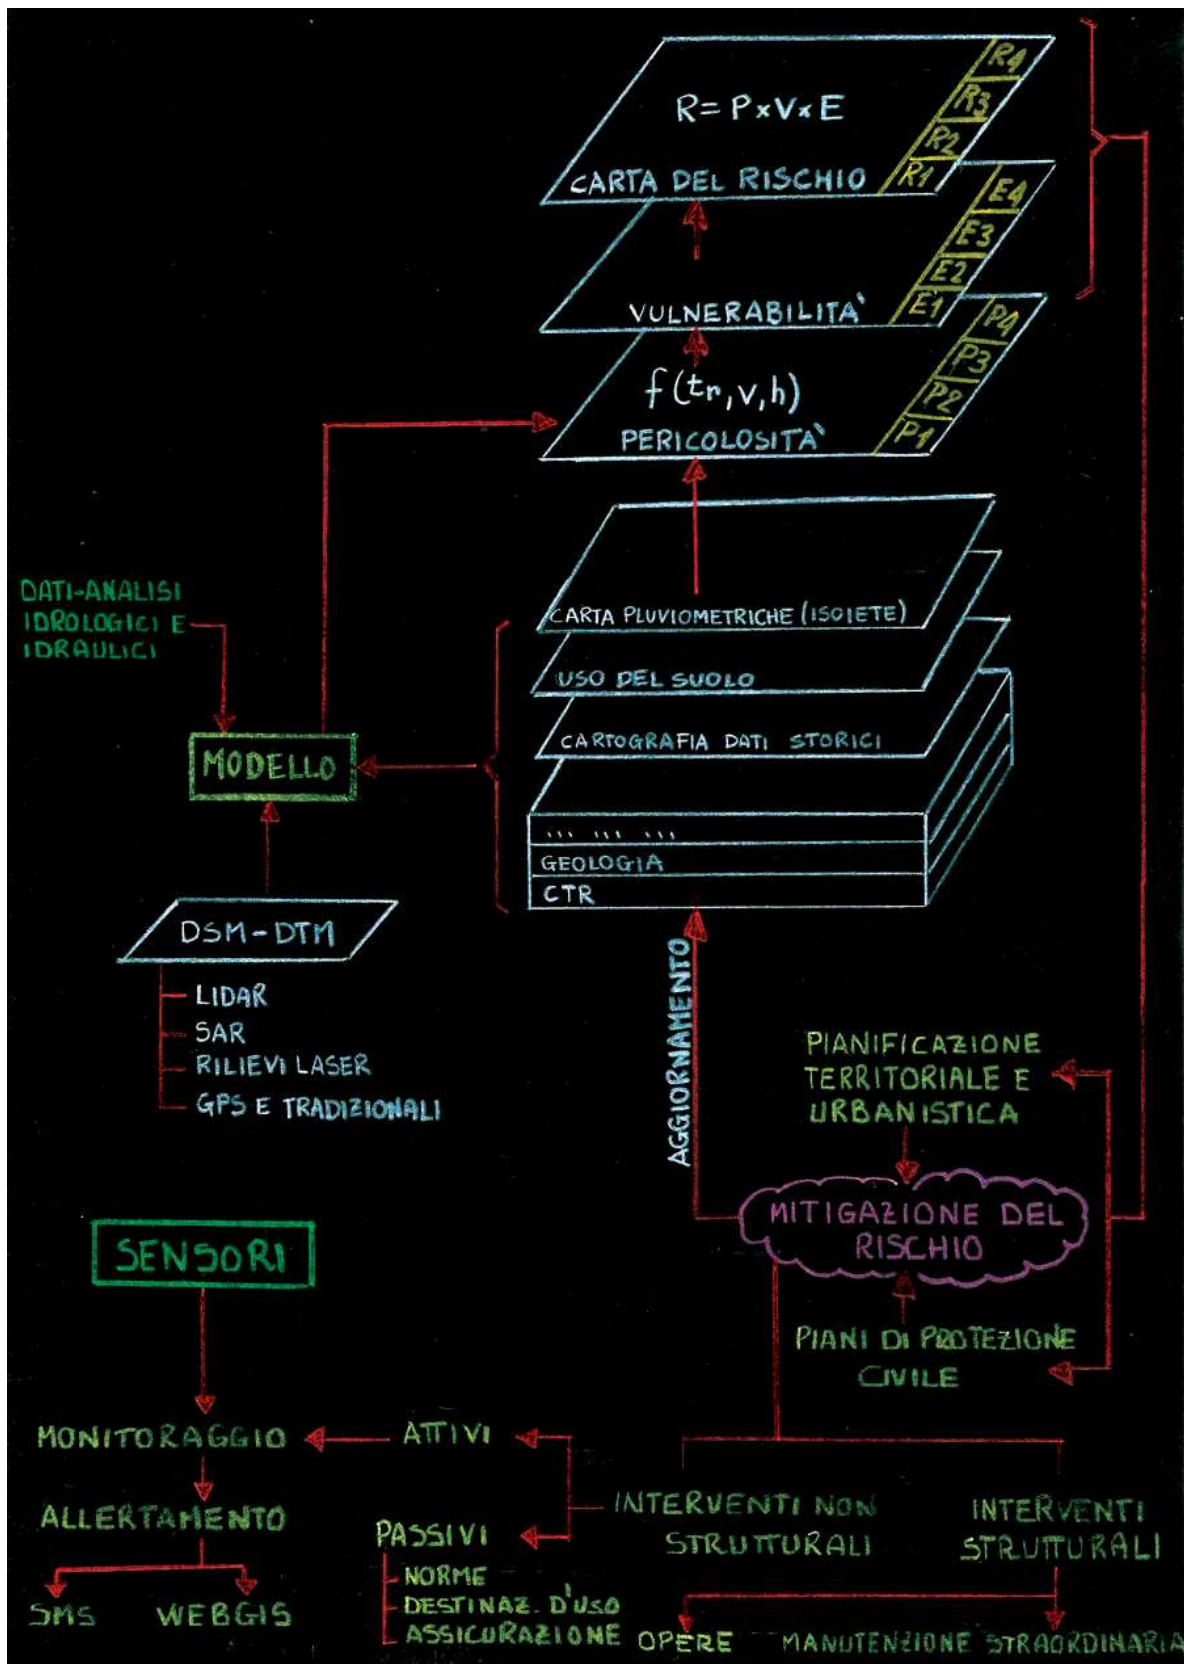 R4
R3
R2
R1
R = P x V x E
CARTA DEL RISCHIO
E4
E3
E2
E1
VULNERABILITA'
P4
P3
P2
P1
f (tr, v, h)
PERICOLOSITA'
CARTA PLUVIOMETRICHE (ISOIETE)
USO DEL SUOLO
CARTOGRAFIA DATI STORICI
... ... ...
GEOLOGIA
CTR
DATI-ANALISI
IDROLOGICI E
IDRAULICI
MODELLO
DSM-DTM
LIDAR
SAR
RILIEVI LASER
GPS E TRADIZIONALI
AGGIORNAMENTO
PIANIFICAZIONE
TERRITORIALE E
URBANISTICA
MITIGAZIONE DEL
RISCHIO
PIANI DI PROTEZIONE
CIVILE
SENSORI
MONITORAGGIO
ATTIVI
ALLERTAMENTO
SMS
WEBGIS
PASSIVI
- NORME
- DESTINAZ. D'USO
- ASSICURAZIONE
INTERVENTI NON
STRUTTURALI
INTERVENTI
STRUTTURALI
OPERE
MANUTENZIONE STRAORDINARIA